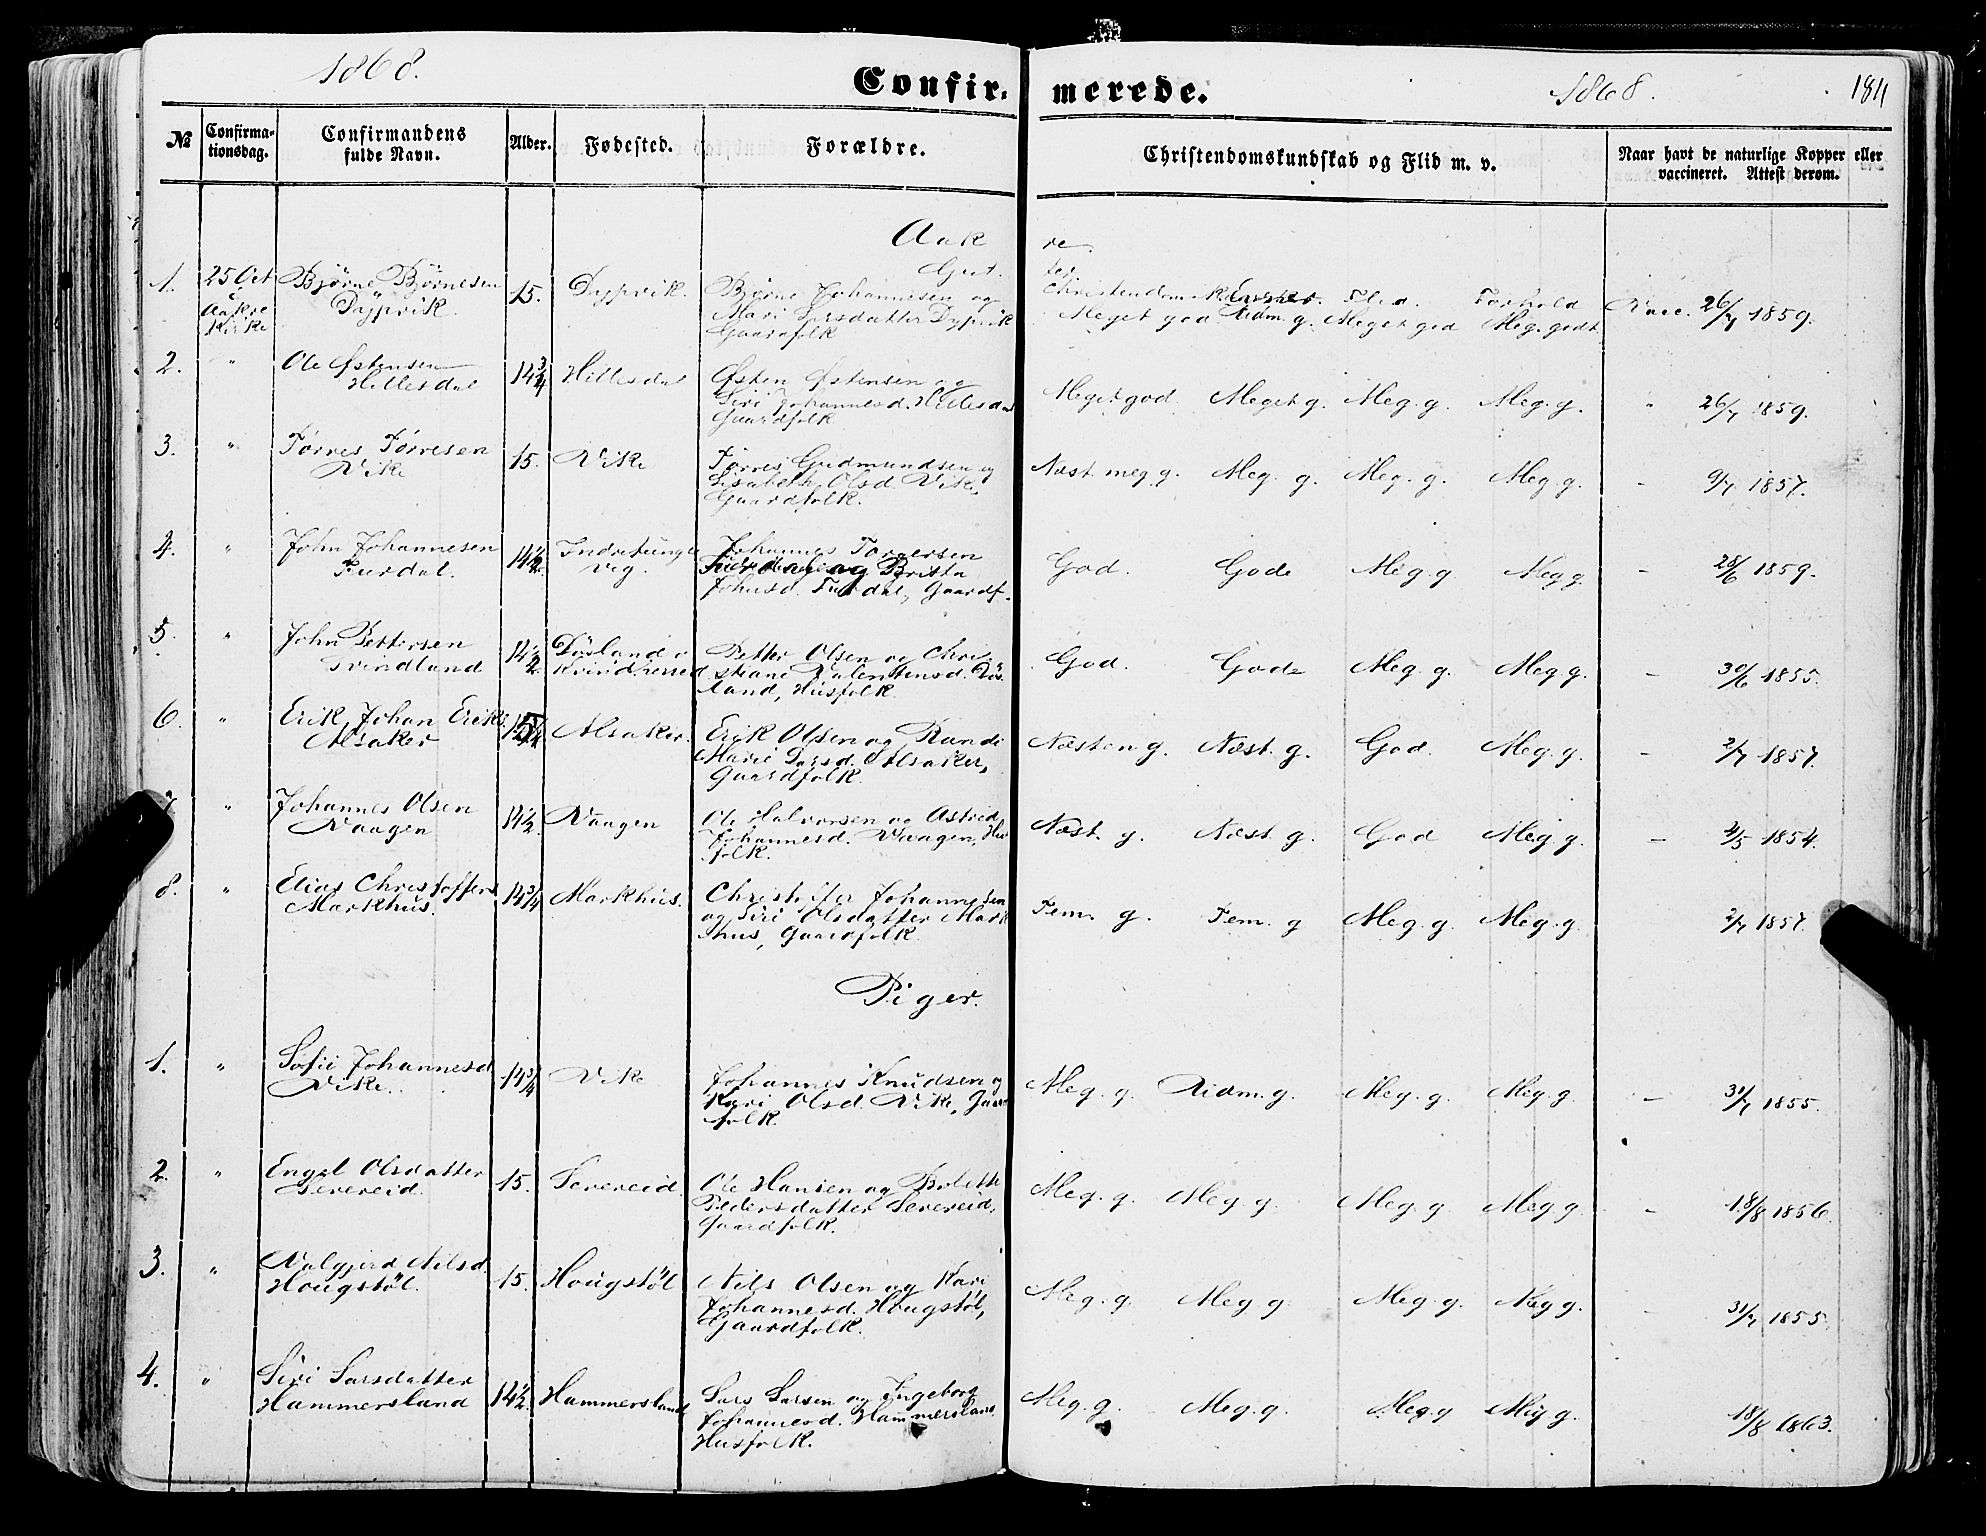 1868.
Confir- merede.
1868.
184
№
Confirma-
tionsdag.
Confirmandens
fulde Navn.
Alder.
Fødested.
Forældre.
Christendomskundskab og Flid m. v.
Naar havt de naturlige Kopper eller
vaccineret. Attest derom.
Aakre
Gutter
Christendomsk Flid. Forhold
1. 25 Oct Bjørne Bjørnesen 15. Dypvik. Bjørne Johannesen og Meget god Udm. g. Meget god Meg. godt Vacc. 26/7 1859.
i Aakre Dypvik Mari Larsdatter Dypvik
Kirke Gaardfolk
2. " Ole Østensen 14 3/4 Hillesdal Østen Østensen og Meget god. Meget g. Meg. g. Meg. g. " 26/7 1859.
Hillesdal Siri Johannesd. Hillesdal
Gaardfolk
3. " Torres Torresen 15. Vike Torres Gudmundsen og Næst. meg g. Meg. g. Meg. g. Meg. g. - 9/7 1857.
Vike Lisabeth Olsd Vike,
Gaardfolk.
4. " John Johannesen 14 1/2 Johannes Torgersen God. Gode Meg. g Meg g. - 28/6 1859.
Furdal. vig. Furdal og Brita
Johnsd. Furdal, Gaardf.
5. " John Pettersen 14 1/2 Døsland i Petter Olsen og Chri- God. Gode Meg. g. Meg g. - 30/6 1855.
Tvindland Kvindherred stiane Valentinsd. Døs-
land, Husfolk
6. " Erik Johan Eriks. 15 1/4 Alsaker. Erik Olsen og Randi Næsten g. Næst. g. God. Meg. g. - 2/7 1857.
Alsaker Marie Larsd. Alsaker,
Gaardfolk
7 " Johannes Olsen 14 1/2. Vaagen Ole Halvorsen og Astrid Næst. g. Næst. g. God Meg. g. - 2/5 1854.
Vaagen Johannesd. Vaagen, Hus
folk.
8. " Elias Christoffers. 14 3/4 Markhus. Christoffer Johannesen Tem. g. Tem. g Meg. g. Meg. g. 2/7 1857.
Markhus. og Siri Olsdatter Mark
hus, Gaardfolk.
Piger.
1. " Sofie Johannesd 14 3/4 Vike Johannes Knudsen og Meg. g. Udm. g. Meg. g. Meg g. - 31/7 1855.
Vike. Kari Olsd. Vike, Gaard
folk.
2. " Engel Olsdatter 15. Severeid. Ole Hansen og Bolette Meg. g. Meg g. Meg. g Meg g. - 18/8 1856.
Severeid. Pedersdatter Severeid,
Gaardfolk.
3. " Valgjerd Nilsd. 15. Hougstøl Nils Olsen og Kari Meg. g. Meg g. Meg. g. Meg g. - 31/7 1855.
Hougstøl. Johannesd. Hougstøl,
Gaardfolk.
4. " Siri Larsdatter 14 1/2. Hammersland Lars Larsen og Ingeborg Meg. g. Meg. g. Meg. g Meg g. 18/8 1863.
Hammersland Johannesd. Hammersland
Husfolk.